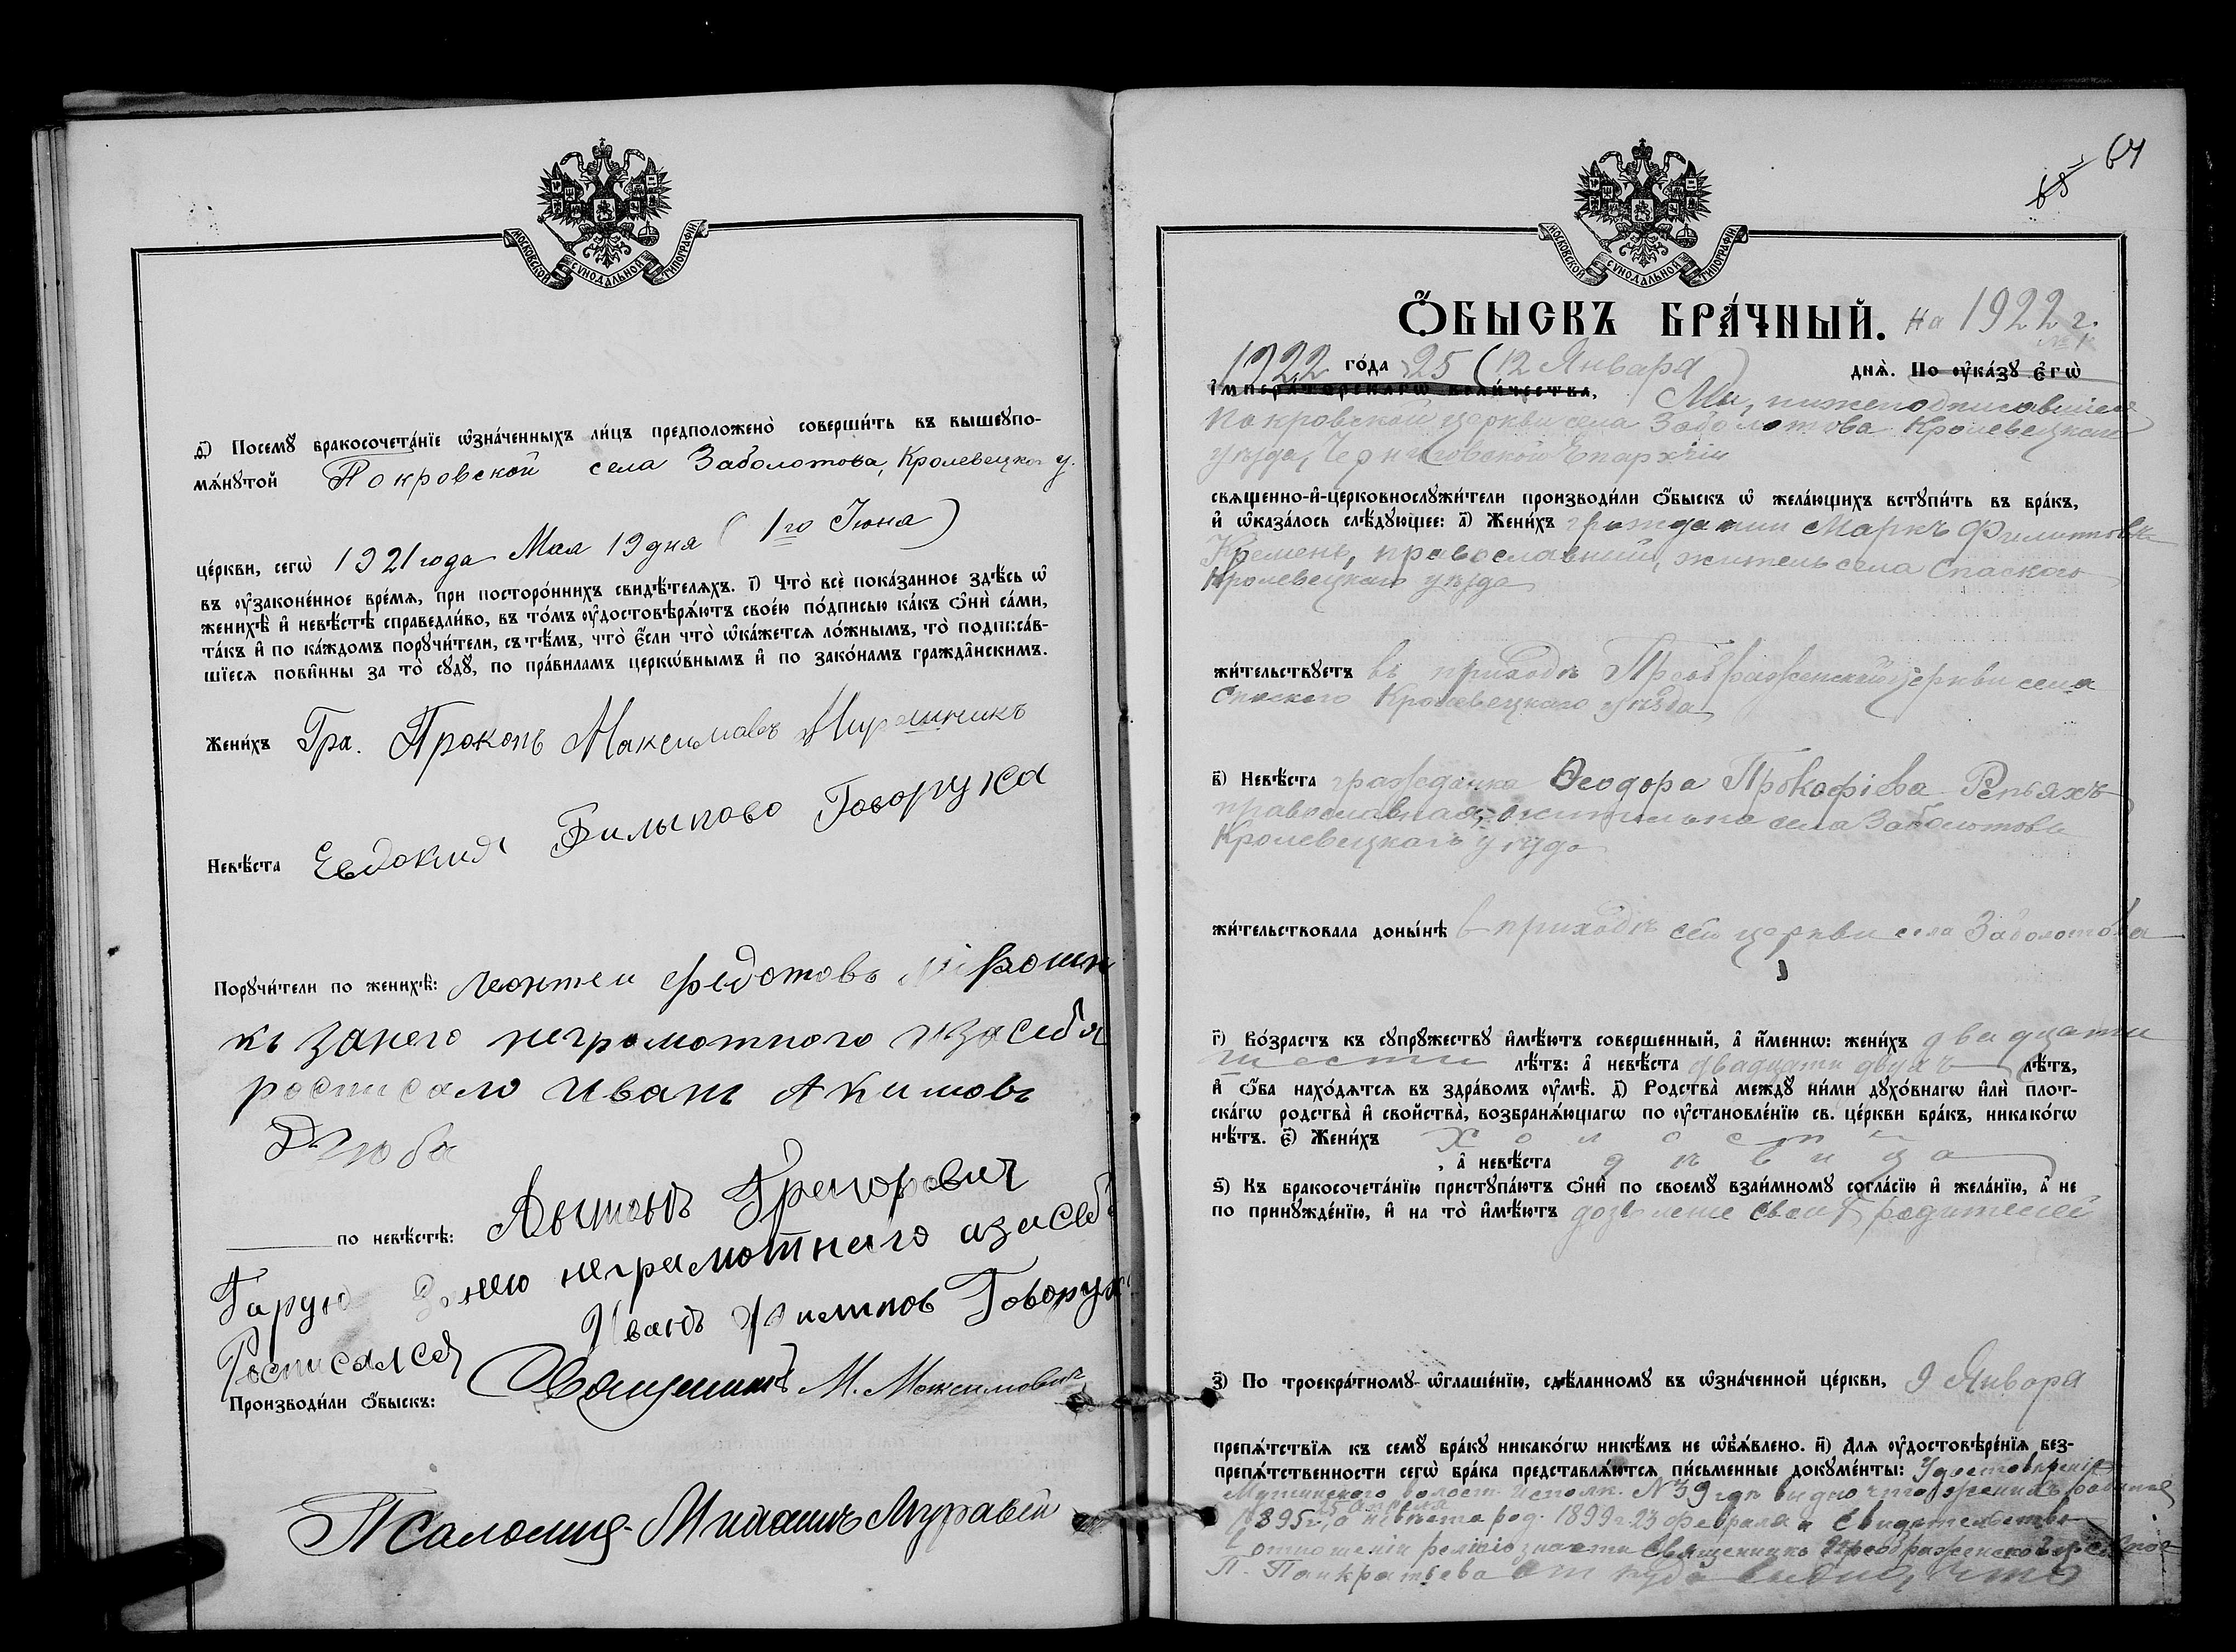 МОСКОВСКОЙ СѴНОДАЛЬНОЙ ТИПОГРАФІИ
д҃) Посемꙋ̀ бракосочета́нїе ѡ҆зна́ченныхъ ли́цъ предположено̀ соверши́ть въ вышеꙋпо-
мѧ́нꙋтой Покровской села Заболотова, Кролевецко у.
це́ркви, сегѡ̀ 1921 года Мая 19 дня (1го Іюна)
въ ᲂу҆законе́нное вре́мѧ, при посторо́ннихъ свидѣ́телѧхъ. і҃) Что̀ всѐ пока́занное здѣ́сь ѡ҆
женихѣ̀ и҆ невѣ́стѣ справедли́во, въ то́мъ ᲂу҆достовѣрѧ́ютъ свое́ю по́дписью ка́къ ѻ҆нѝ са́ми,
та́къ и҆ по ка́ждомъ порꙋчи́тели, съ тѣ́мъ, что̀ є҆́сли что̀ ѡ҆ка́жетсѧ ло́жнымъ, то̀ подписа́в-
шїесѧ пови́нны за то̀ сꙋдꙋ̀, по пра́виламъ церко́внымъ и҆ по зако́намъ гражда́нскимъ.
Жени́хъ Гра. Прокопъ Максимовъ Мирошникъ
Невѣ́ста Евдокия Филыпово Говоруха
Порꙋчи́тели по женихѣ̀: Леонтеи Федотовъ Мірошни
къ занего неграмотного изасебя
росписало Иванъ Акимовъ
Дзюба
по невѣ́стѣ: Григорович
Гарую занею неграмотнаго изасебя
Росписался Иванъ Филипов Говорух
Производи́ли ѻ҆́быскъ: Священникъ М. Максимович
Псаломщ. Михаилъ Муравій
65 64
МОСКОВСКОЙ СѴНОДАЛЬНОЙ ТИПОГРАФІИ
Ѻ҆́БЫСКЪ БРА́ЧНЫЙ. на 1922 г.
№ 1
1922 го́да 25 (12 Января) днѧ̀. По ᲂу҆ка́зꙋ є҆гѡ̀
і҆мпера́торскагѡ вели́чества, Мы, нижеподписавшіеся
Покровской церкви села Заболотова Кролевецкаго
уѣзда, Черниговской Епархіи
свѧще́нно-и҆-церковнослꙋжи́тели производи́ли ѻ҆́быскъ ѡ҆ жела́ющихъ встꙋпи́ть въ бра́къ,
и҆ ѡ҆каза́лось слѣ́дꙋющее: а҃) Жени́хъ гражданин Маркъ Филиповъ
Кремень, православный, житель села Спаского
Кролевецкаго уѣзда
жи́тельствꙋетъ въ приходѣ Преображенской церкви села
Спаского Кролевецкаго уѣзда
в҃) Невѣ́ста гражданка Ѳеодора Прокофіева Репьяхъ
православная, жителька села Заболотова
Кролевецкаго уѣзда
жи́тельствовала доны́нѣ в приходѣ сей церкви села Заболотова
г҃) Во́зрастъ къ сꙋпрꙋ́жествꙋ и҆мѣ́ютъ соверше́нный, а҆ и҆́меннѡ: жени́хъ двадцати
шести лѣ́тъ: а҆ невѣ́ста двадцати двухъ лѣ́тъ,
и҆ ѻ҆́ба нахо́дѧтсѧ въ здра́вомъ ᲂу҆мѣ̀. д҃) Родства̀ междꙋ̀ ни́ми дꙋхо́внагѡ и҆лѝ плот-
ска́гѡ родства̀ и҆ сво́йства̀, возбранѧ́ющагѡ по ᲂу҆становле́нїю св. це́ркви бра́къ, никако́гѡ
нѣ́тъ. є҃) Жени́хъ холостъ
, а҆ невѣ́ста дѣвица
ѕ҃) Къ бракосочета́нїю пристꙋпа́ютъ ѻ҆нѝ по своемꙋ̀ взаи́мномꙋ согла́сїю и҆ жела́нїю, а҆ не
по принꙋжде́нїю, и҆ на то̀ и҆мѣ́ютъ дозволеніе своихъ родителей
з҃) По троекра́тномꙋ ѡ҆глаше́нїю, сдѣ́ланномꙋ въ ѡ҆зна́ченной це́ркви, 9 Января
препѧ́тствїѧ къ семꙋ̀ бра́кꙋ никако́гѡ никѣ́мъ не ѡ҆б̾ѧ́влено. и҃) Длѧ ᲂу҆достовѣре́нїѧ без-
препѧ́тственности сегѡ̀ бра́ка представлѧ́ютсѧ пи́сьменные докꙋме́нты: Удостовѣреніе
Мутинскаго волост. исполк. № 39 гдѣ видно что женихъ родился
1895 г. 25 апреля, а невѣста род. 1899 г 23 февраля и свидетельство
в отношеніи религіозности священника Преображенской ц. с. Спас
П. Панкратьева откуда видно, что